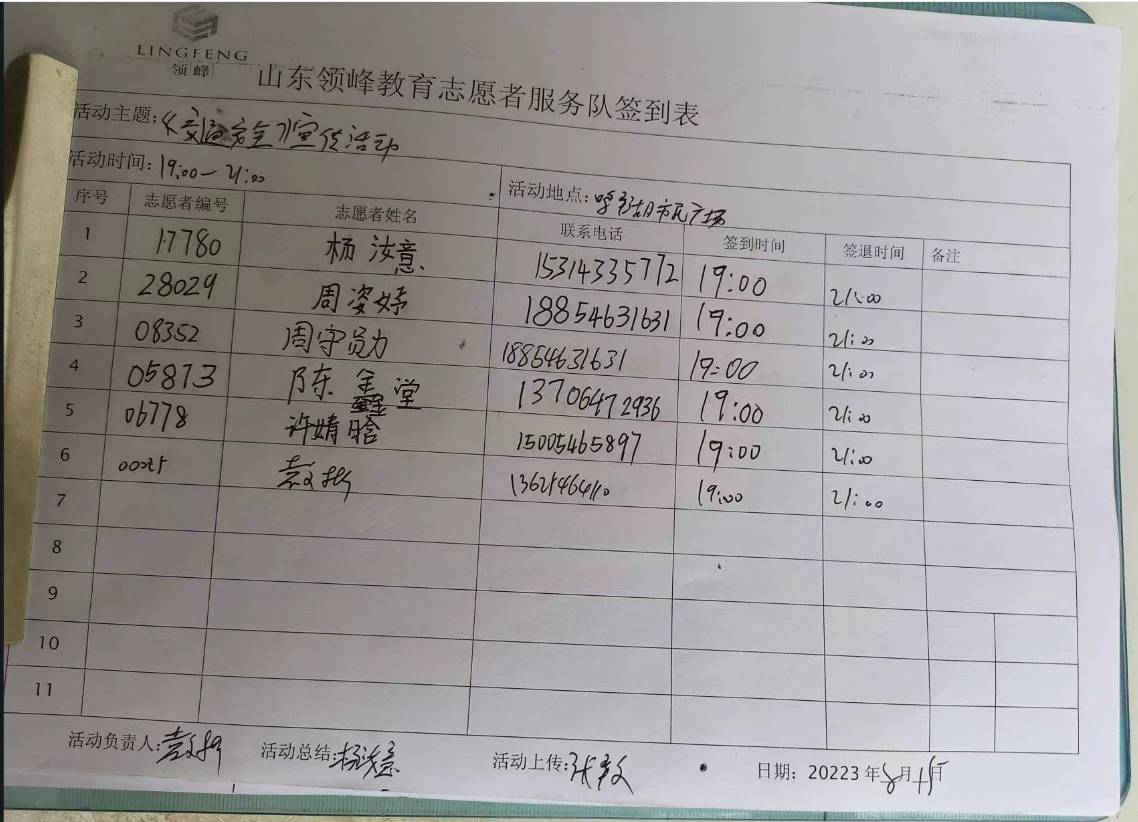 LINGFENG
领峰
山东领峰教育志愿者服务队签到表
活动主题:《交通安全》宣传活动
活动时间:19:00-21:00
活动地点: 市民广场
序号 志愿者编号 志愿者姓名 联系电话 签到时间 签退时间 备注
1 17780 杨汝意 15314335772 19:00 21:00
2 28029 周姿婷 18854631631 19:00 21:00
3 08352 周守勋 18854631631 19:00 21:00
4 05873 陈鑫堂 13706472936 19:00 21:00
5 06778 许婧晗 15005465897 19:00 21:00
6 19:00 21:00
7
8
9
10
11
活动负责人: 活动总结:杨汝意 活动上传: 日期: 20223年8月15日